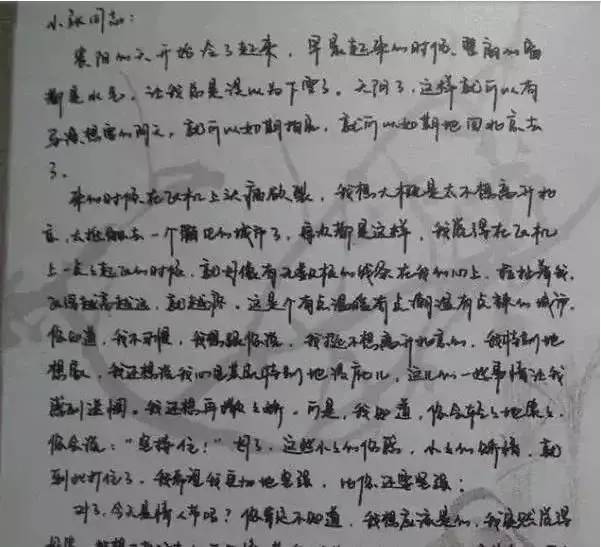 小张同志：
襄阳的天开始冷了起来，早晨起来的时候，整扇的窗
都是水汽，让我总是误以为下雪了。天阴了，这样就可以有
导演想要的阴天，就可以如期拍完，就可以如期地回北京去
了。
来的时候在飞机上头痛欲裂，我想大概是太不想离开北
京，去抵触去一个陌生的城市了，每次都是这样，我觉得在飞机
上一点点起飞的时候，就好像有无数根的线系在我的心上，拉扯着我
飞得越高越远，就越疼。这是个有点温暖有点潮湿有点辣的城市，
你知道，我不习惯，我想跟你说，我挺不想离开北京的，我特别地
想家，我还想说我心里其实特别地没底儿，这儿的一些事情让我
感到迷惘。我还想再撒点娇。可是，我知道，你会轻轻地厚
你会说："坚持住！"对了，这些小小的依恋，小小的矫情，就
到此打住了，我希望我更加地坚强，比你还要坚强；
对了，今天是情人节吗？你肯定不知道，我想应该是的，我突然觉得